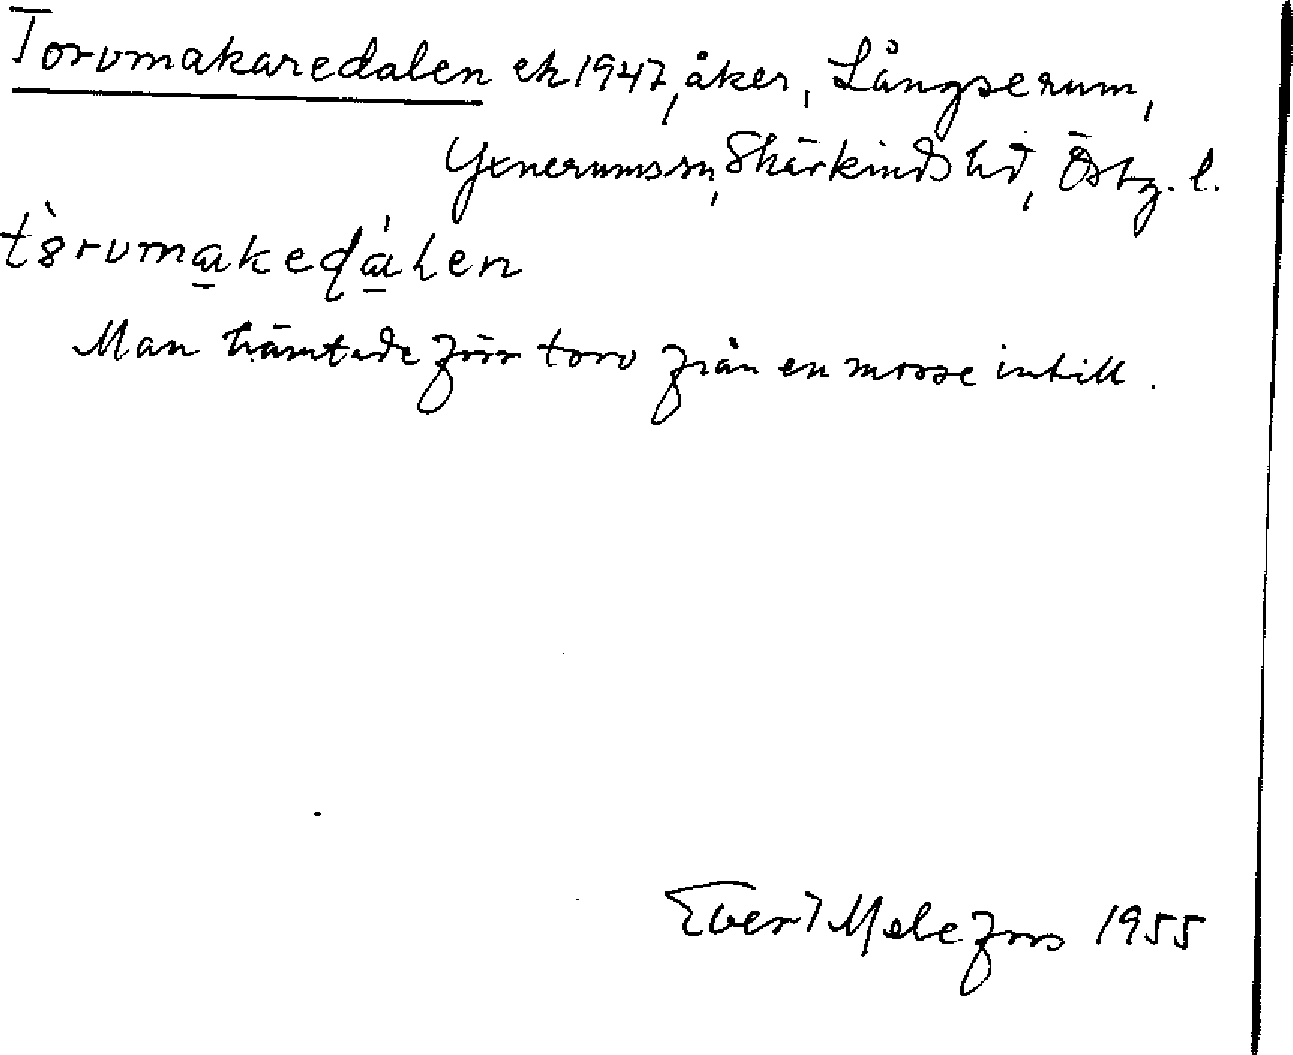 Torvmakaredalen ek 1947, åker, Långserum,
Yxnerums sn, Skärkinds hd, Östg. l.
Man hämtade förr torv från en mosse intill.
Evert Melefors 1955